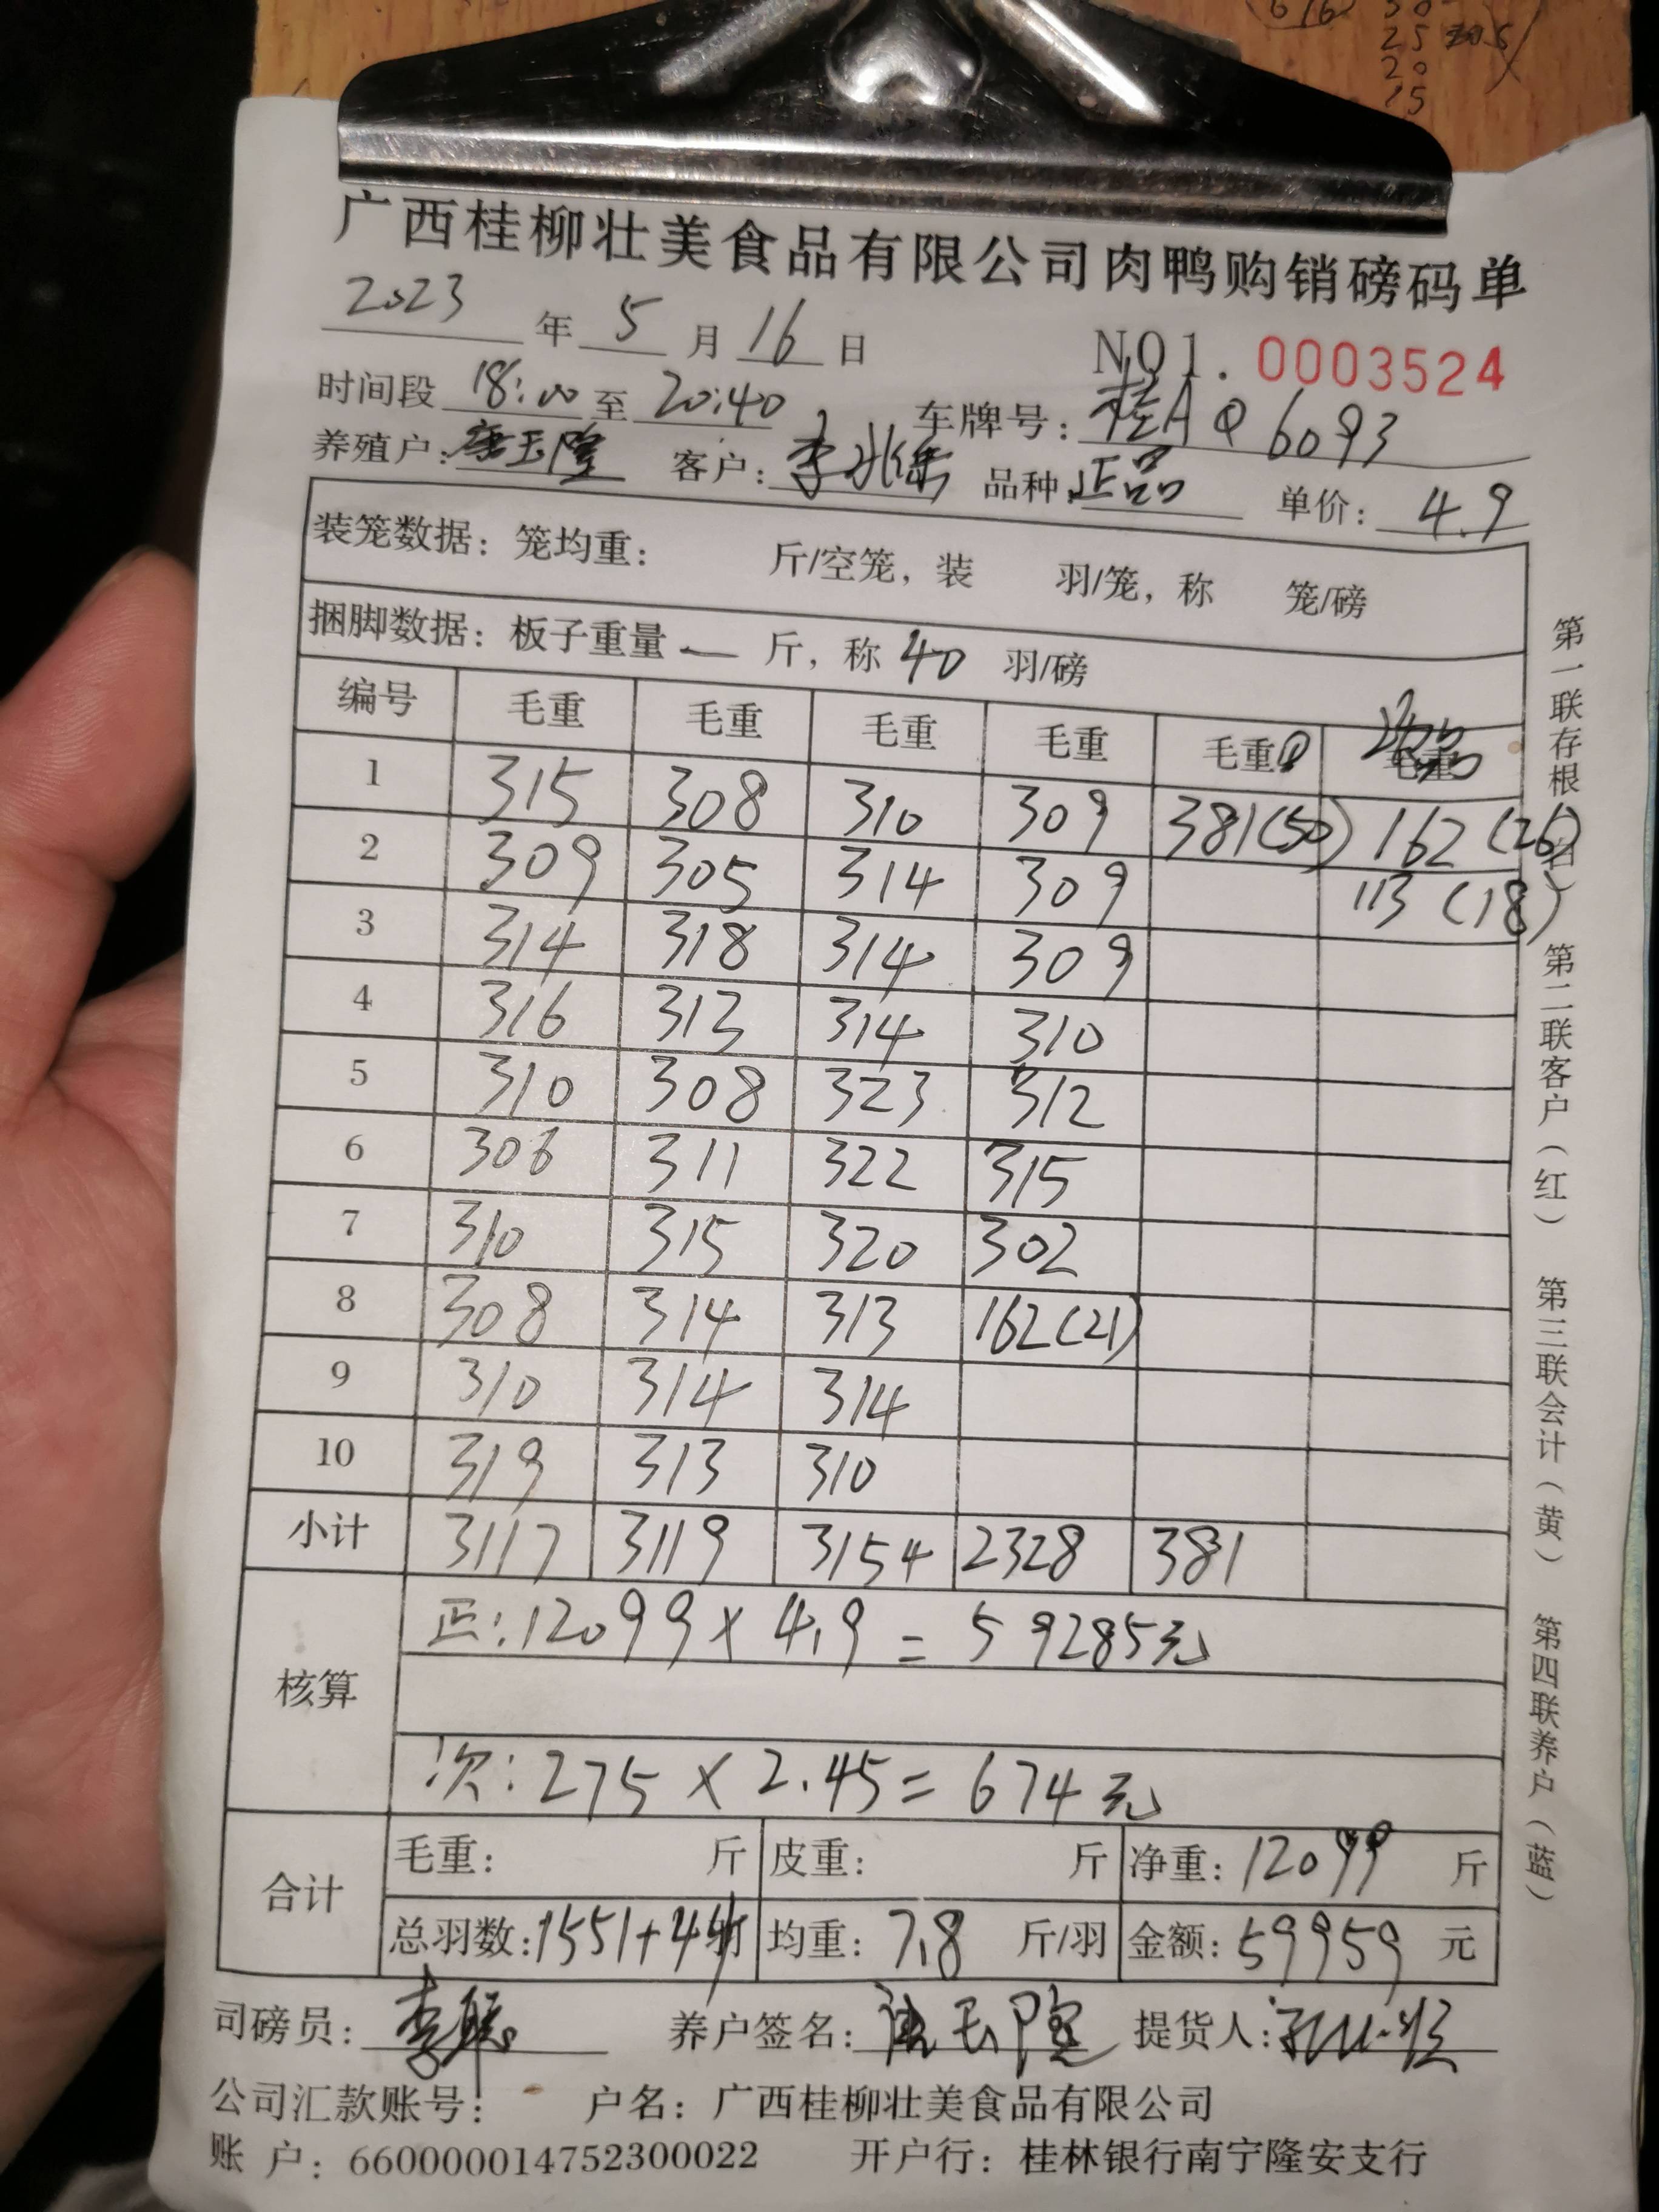 616 30
25
20
15
广西桂柳壮美食品有限公司肉鸭购销磅码单
2023 年 5 月 16 日 NO1. 0003524
时间段 18:00 至 20:40 车牌号: 桂A Q 6093
养殖户: 玉隆 客户: 李兆 品种: 正品 单价: 4.9
装笼数据: 笼均重: 斤/空笼, 装 羽/笼, 称 笼/磅
捆脚数据: 板子重量 — 斤, 称 40 羽/磅
编号 毛重 毛重 毛重 毛重 毛重 毛重 次品
1 315 308 310 309 381(50) 162(26)
2 309 305 314 309 113(18)
3 314 318 314 309
4 316 313 314 310
5 310 308 323 312
6 306 311 322 315
7 310 315 320 302
8 308 314 313 162(21)
9 310 314 314
10 319 313 310
小计 3117 3119 3154 2328 381
核算 正: 12099 × 4.9 = 59285元
次: 275 × 2.45 = 674元
合计 毛重: 斤 皮重: 斤 净重: 12099 斤
总羽数: 1551+44羽 均重: 7.8 斤/羽 金额: 59959 元
司磅员: 李 养户签名: 玉隆 提货人:
公司汇款账号: 户名: 广西桂柳壮美食品有限公司
账 户: 660000014752300022 开户行: 桂林银行南宁隆安支行
第一联存根(白) 第二联客户(红) 第三联会计(黄) 第四联养户(蓝)